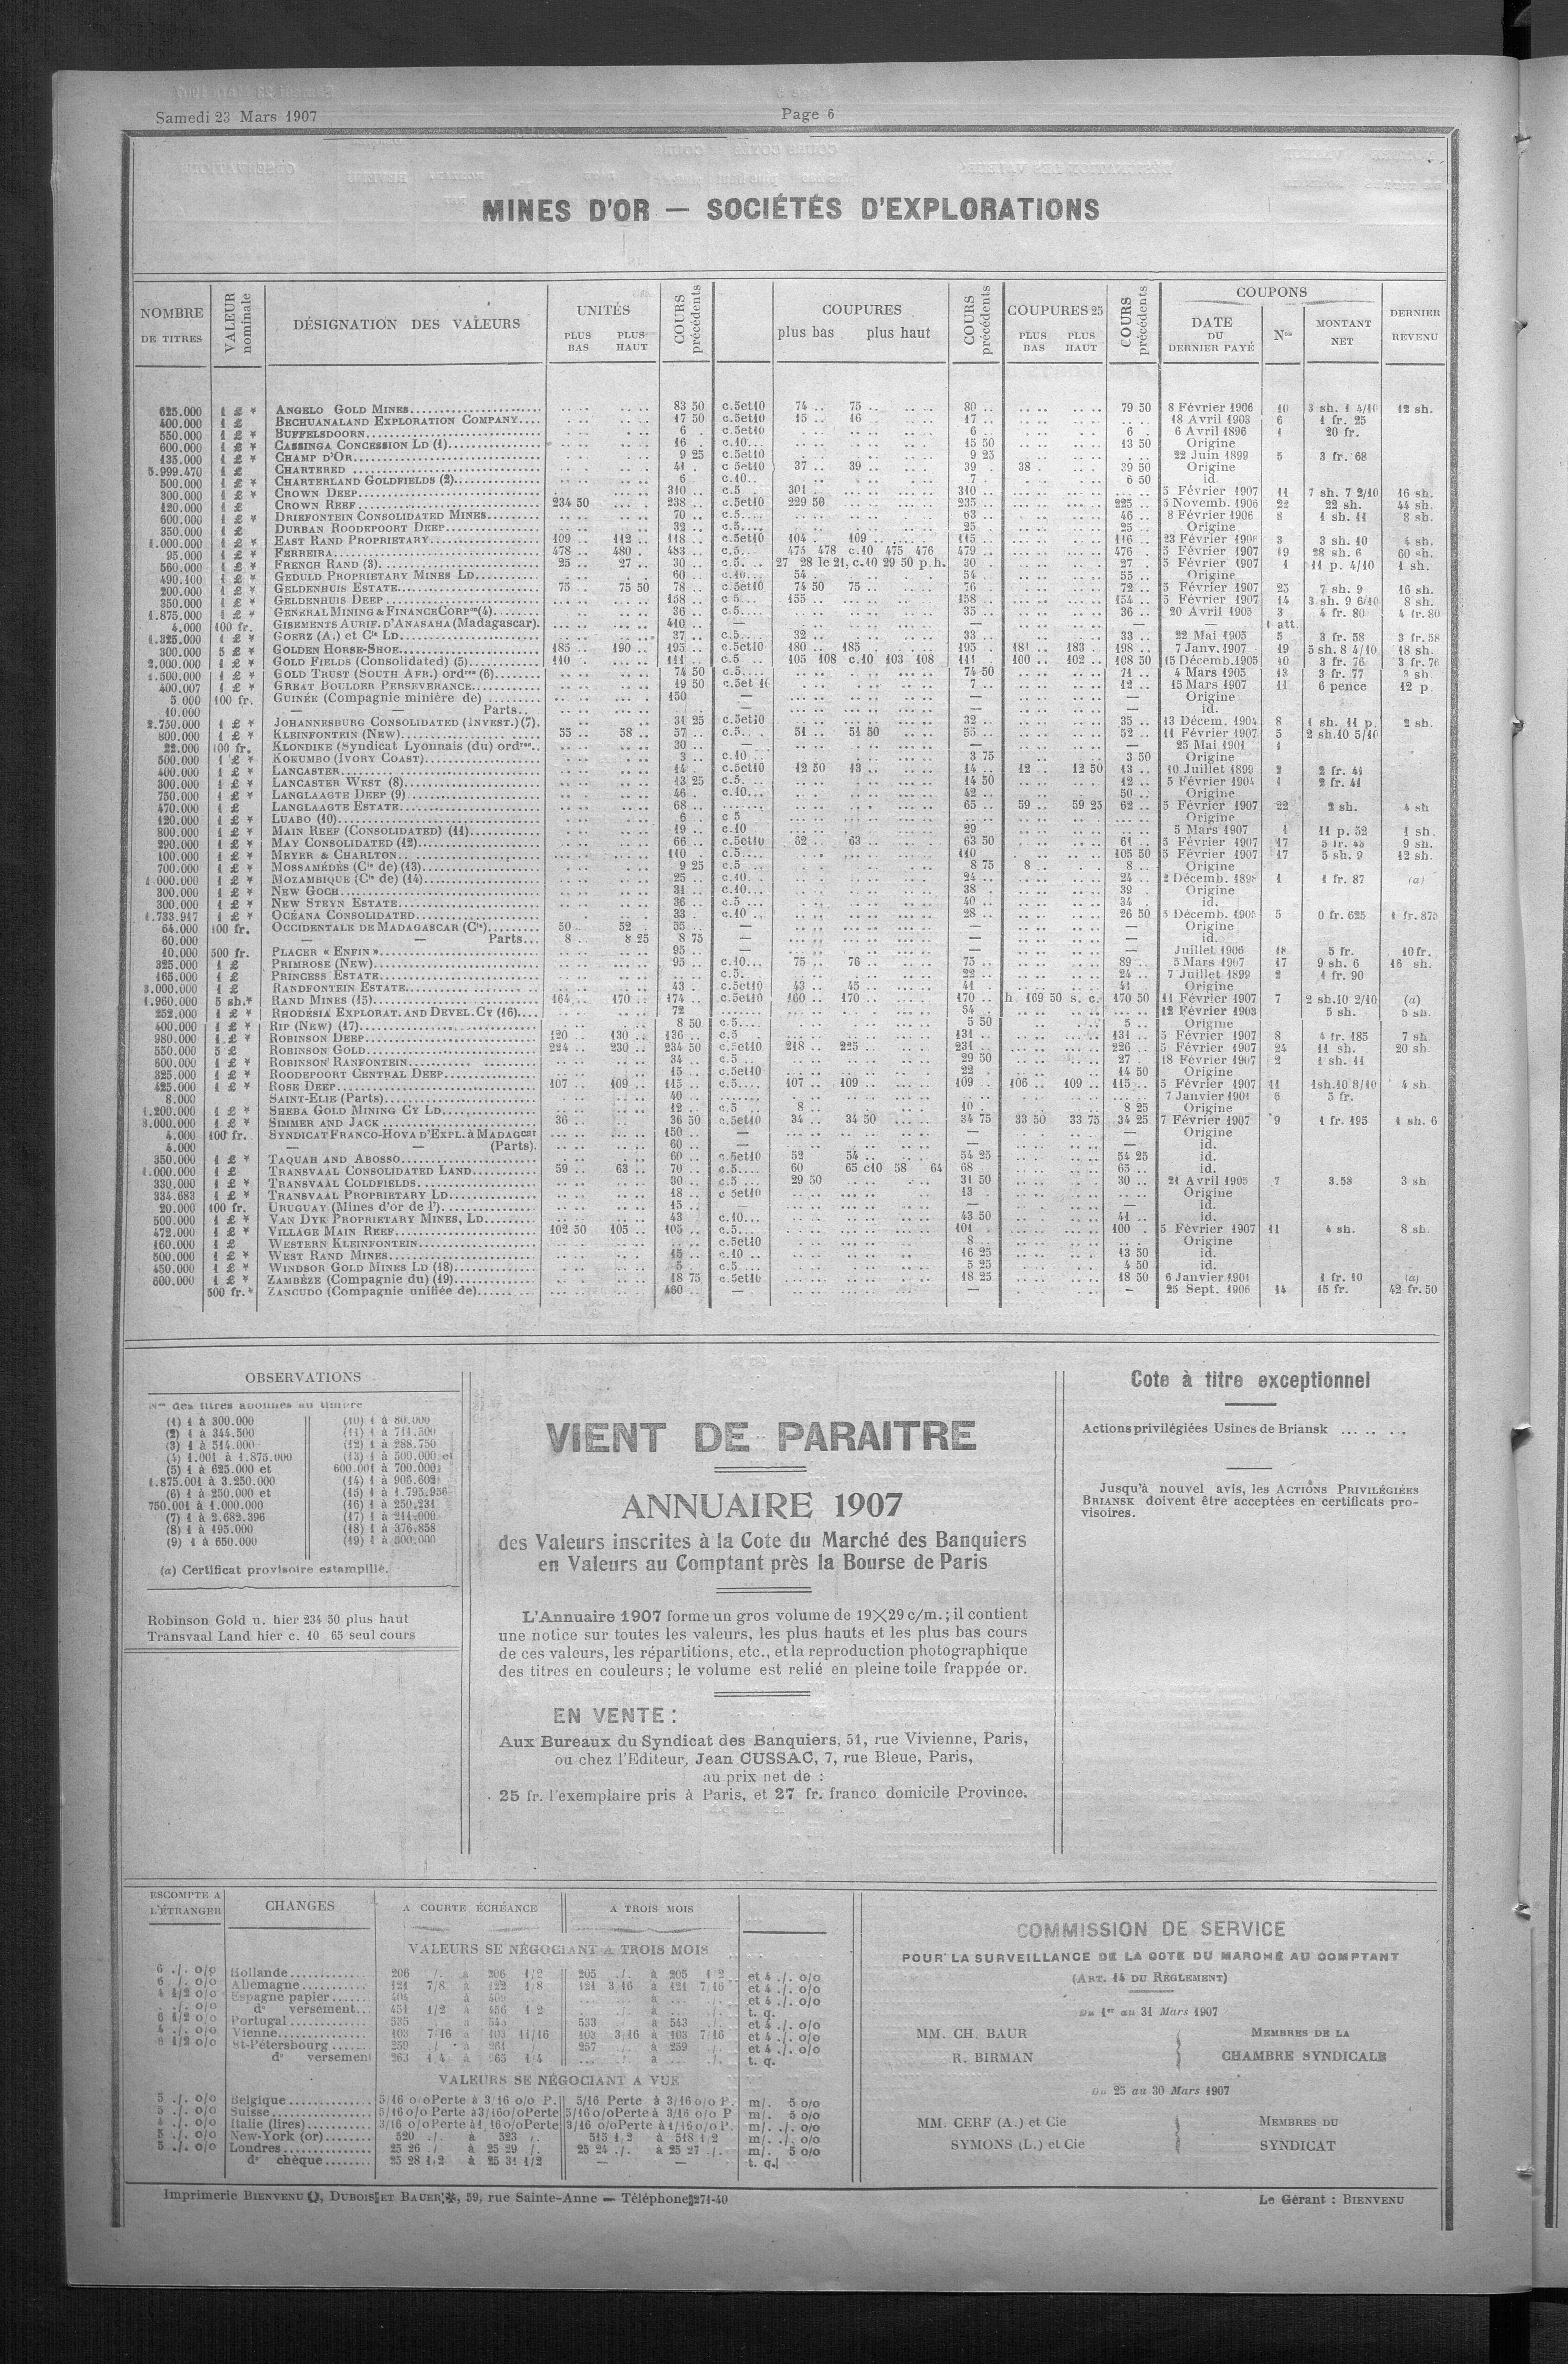 Samedi 23 Mars 1907
Page 6
MINES D'OR — SOCIÉTÉS D'EXPLORATIONS
NOMBRE DE TITRES | VALEUR nominale | DÉSIGNATION DES VALEURS | UNITÉS PLUS BAS PLUS HAUT | COURS précédents | COUPURES plus bas plus haut | COURS précédents | COUPURES 25 PLUS BAS PLUS HAUT | COURS précédents | COUPONS DATE DU DERNIER PAYÉ | Nos | MONTANT NET | DERNIER REVENU
625.000 1 £ * ANGELO GOLD MINES 83 50 c.5et10 74 .. 75 .. 80 .. 79 50 8 Février 1906 10 3 sh. 1 4/10 12 sh.
400.000 1 £ BECHUANALAND EXPLORATION COMPANY 17 50 c.5et10 15 .. 16 .. 17 .. 18 Avril 1903 6 1 fr. 25
550.000 1 £ * BUFFELSDOORN 6 c.5et10 6 .. 6 .. 6 Avril 1896 1 20 fr.
600.000 1 £ * CASSINGA CONCESSION LD (1) 16 . c.10... 15 50 13 50 Origine
135.000 1 £ * CHAMP D'OR 9 25 c.5et10 9 25 22 Juin 1899 5 3 fr. 68
5.999.470 1 £ CHARTERED 41 . c 5et10 37 .. 39 .. 39 . 38 . 39 50 Origine
500.000 1 £ * CHARTERLAND GOLDFIELDS (2) 6 c.10.. 7 . 6 50 id.
300.000 1 £ * CROWN DEEP 310 .. c.5 . 301 . 310 .. 5 Février 1907 11 7 sh. 7 2/10 16 sh.
120.000 1 £ CROWN REEF 234 50 238 .. c.5et10 229 50 235 .. 225 .. 5 Novemb. 1906 22 22 sh. 44 sh.
600.000 1 £ * DRIEFONTEIN CONSOLIDATED MINES 70 .. c.5.... 63 .. 46 .. 8 Février 1906 8 1 sh. 11 8 sh.
350.000 1 £ DURBAN ROODEPOORT DEEP 32 .. c.5.... 25 .. 25 .. Origine
1.000.000 1 £ * EAST RAND PROPRIETARY 109 .. 112 .. 118 .. c.5et10 104 . 109 .. 115 .. 116 .. 23 Février 190 3 3 sh. 10 4 sh.
95.000 1 £ * FERREIRA 478 .. 480 . 483 .. c.5... 475 478 c.10 475 476 479 .. 476 . 5 Février 1907 19 28 sh. 6 60 sh.
560.000 1 £ * FRENCH RAND (3) 25 .. 27 .. 30 .. c.5. .. 27 28 le 21, c.10 29 50 p.h. 30 . 27 . 5 Février 1907 1 11 p. 4/10 1 sh.
490.100 1 £ * GEDULD PROPRIETARY MINES LD 60 .. c.10... 54 . 54 55 .. Origine
200.000 1 £ * GELDENHUIS ESTATE 75 .. 75 50 78 .. c.5et10 74 50 75 .. 76 .. 72 .. 5 Février 1907 25 7 sh. 9 16 sh.
350.000 1 £ * GELDENHUIS DEEP 158 .. c 5... 155 .. 158 .. 154 .. 5 Février 1907 14 3 sh. 9 6/10 8 sh.
1.875.000 1 £ * GENERAL MINING & FINANCE CORPon (4) 36 .. c.5.... 35 .. 36 .. 20 Avril 1905 3 4 fr. 80 4 fr. 80
4.000 100 fr. GISEMENTS AURIF. D'ANASAHA (Madagascar). 410 .. — — — — 1 att.
1.325.000 1 £ * GOERZ (A.) et Cie LD 37 .. c.5.... 32 .. 33 .. 33 .. 22 Mai 1905 5 3 fr. 58 3 fr. 58
300.000 5 £ * GOLDEN HORSE-SHOE 185 .. 190 .. 195 .. c.5et10 180 .. 185 .. 195 . 181 .. 183 . 198 .. 7 Janv. 1907 19 5 sh. 8 4/10 18 sh.
2.000.000 1 £ * GOLD FIELDS (Consolidated) (5) 110 . 111 .. c.5 .. 105 108 c.10 103 108 111 . 100 .. 102 .. 108 50 15 Décemb. 1905 10 3 fr. 76 3 fr. 76
1.500.000 1 £ * GOLD TRUST (SOUTH AFR.) ordres (6) 74 50 c.5.... 74 50 71 .. 4 Mars 1905 13 3 fr. 77 3 sh.
400.007 1 £ * GREAT BOULDER PERSEVERANCE 19 50 c.5et 10 7 .. 12 .. 15 Mars 1907 11 6 pence 12 p.
5.000 100 fr. GUINÉE (Compagnie minière de) 150 — — — Origine
10.000 — — Parts.. — — — id.
2.750.000 1 £ * JOHANNESBURG CONSOLIDATED (INVEST.) (7). 31 25 c.5et10 32 .. 35 .. 13 Décem. 1904 8 1 sh. 11 p. 2 sh.
800.000 1 £ * KLEINFONTEIN (NEW) 55 .. 58 .. 57 .. c.5.. . 51 .. 51 50 55 .. 52 .. 11 Février 1907 5 2 sh.10 5/10
22.000 100 fr. KLONDIKE (Syndicat Lyonnais (du) ordres.. 30 .. — — — 25 Mai 1901 1
500.000 1 £ * KOKUMBO (IVORY COAST) 3 .. c.10 .. 3 75 3 50 Origine
400.000 1 £ * LANCASTER 14 . c.5et10 12 50 13 .. 14 .. 12 .. 12 50 13 .. 10 Juillet 1899 2 2 fr. 41
300.000 1 £ * LANCASTER WEST (8) 13 25 c.5.... 14 50 12 .. 5 Février 1904 1 2 fr. 41
750.000 1 £ * LANGLAAGTE DEEP (9) 46 . c.10... 42 .. 50 .. Origine
470.000 1 £ LANGLAAGTE ESTATE 68 .. 65 .. 59 .. 59 25 62 .. 5 Février 1907 22 2 sh. 4 sh
120.000 1 £ * LUABO (10) 6 . c 5 .... Origine
800.000 1 £ * MAIN REEF (CONSOLIDATED) (11) 19 .. c.10 . 29 5 Mars 1907 1 11 p. 52 1 sh.
290.000 1 £ * MAY CONSOLIDATED (12) 66 .. c.5et10 62 .. 63 .. 63 50 61 .. 5 Février 1907 17 5 fr. 43 9 sh.
100.000 1 £ * MEYER & CHARLTON 110 . c.5.... 110 105 50 5 Février 1907 17 5 sh. 9 12 sh.
700.000 1 £ * MOSSAMÉDÈS (Cie de) (13) 9 25 c.5.... 8 75 8 .. 8 .. Origine
1.000.000 1 £ * MOZAMBIQUE (Cie de) (14) 25 .. c.10... 24 .. 24 .. 2 Décemb. 1898 1 1 fr. 87 (a)
300.000 1 £ * NEW GOCH 31 .. c.10... 38 . 39 . Origine
300.000 1 £ * NEW STEYN ESTATE 36 .. c.5 ... 40 .. 34 . id.
1.733.917 1 £ * OCÉANA CONSOLIDATED 33 . c.10 .. 28 .. 26 50 5 Décemb. 1905 5 0 fr. 625 1 fr. 875
64.000 100 fr. OCCIDENTALE DE MADAGASCAR (Cie) 50 .. 52 . 55 .. — — — Origine
60.000 — — Parts... 8 .. 8 25 8 75 — — — id.
10.000 500 fr. PLACER « ENFIN » 95 .. — — — Juillet 1906 18 5 fr. 10 fr.
325.000 1 £ PRIMROSE (NEW) 95 . c.10... 75 .. 76 .. 75 .. 89 .. 5 Mars 1907 17 9 sh. 6 16 sh.
165.000 1 £ PRINCESS ESTATE c.5. 22 .. 24 .. 7 Juillet 1899 2 1 fr. 90
3.000.000 1 £ RANDFONTEIN ESTATE 43 . c.5et10 43 .. 45 .. 41 41 . Origine
1.960.000 5 sh.* RAND MINES (15) 164 .. 170 .. 174 .. c.5et10 160 .. 170 .. 170 .. h 169 50 s. c. 170 50 11 Février 1907 7 2 sh.10 2/10 (a)
252.000 1 £ * RHODÉSIA EXPLORAT. AND DEVEL. CY (16) 72 54 .. 12 Février 1903 5 sh. 5 sh.
400.000 1 £ * RIP (NEW) (17) 8 50 c.5.... 5 50 5 .. Origine
980.000 1 £ * ROBINSON DEEP 120 .. 130 .. 136 .. c.5 131 .. 131 .. 5 Février 1907 8 4 fr. 185 7 sh
550.000 5 £ ROBINSON GOLD 224 .. 230 .. 234 50 c.5et10 218 .. 225 .. 231 .. 226 .. 5 Février 1907 24 11 sh. 20 sh.
600.000 1 £ * ROBINSON RANFONTEIN 34 .. c.5 .. 29 50 27 .. 18 Février 1907 2 1 sh. 11
325.000 1 £ * ROODEPOORT CENTRAL DEEP 15 .. c.5et10 22 . 14 50 Origine
425.000 1 £ * ROSE DEEP 107 .. 109 .. 115 .. c.5.... 107 .. 109 .. 109 .. 106 .. 109 .. 115 .. 5 Février 1907 11 1sh.10 8/10 4 sh.
8.000 SAINT-ELIE (Parts) 40 .. 7 Janvier 1901 6 5 fr.
1.200.000 1 £ * SHEBA GOLD MINING CY LD 12 .. c.5 .. 8 .. 10 .. 8 25 Origine
3.000.000 1 £ * SIMMER AND JACK 36 .. 36 50 c.5et10 34 .. 34 50 34 75 33 50 33 75 34 25 7 Février 1907 9 1 fr. 195 1 sh. 6
4.000 100 fr. SYNDICAT FRANCO-HOVA D'EXPL. à MADAGcar 150 .. — — — Origine
4.000 — (Parts). 60 .. — — — id.
350.000 1 £ * TAQUAH AND ABOSSO 60 .. c.5et10 52 54 .. 54 25 54 25 id.
1.000.000 1 £ TRANSVAAL CONSOLIDATED LAND 59 .. 63 .. 70 .. c.5.... 60 65 c10 58 64 68 65 .. id.
330.000 1 £ * TRANSVAAL COLDFIELDS 30 .. c.5 ... 29 50 31 50 30 .. 21 Avril 1905 7 3.58 3 sh
334.683 1 £ * TRANSVAAL PROPRIETARY LD 18 .. c 5et10 13 . Origine
20.000 100 fr. URUGUAY (Mines d'or de l') 15 .. — — — id.
500.000 1 £ * VAN DYK PROPRIETARY MINES, LD 43 c.10... 43 50 41 .. id.
472.000 1 £ * VILLAGE MAIN REEF 102 50 105 .. 105 .. c.5... 101 . 100 . 5 Février 1907 11 4 sh. 8 sh.
160.000 1 £ WESTERN KLEINFONTEIN c.5et10 8 .. Origine
500.000 1 £ * WEST RAND MINES 15 .. c.10 .. 16 25 13 50 id.
450.000 1 £ * WINDSOR GOLD MINES LD (18) 5 . c.5.... 5 25 4 50 id.
600.000 1 £ * ZAMBÈZE (Compagnie du) (19) 18 75 c.5et10 18 25 18 50 6 Janvier 1901 1 fr. 10 (a)
500 fr.* ZANCUDO (Compagnie unifiée de) 460 .. — — — 25 Sept. 1906 14 15 fr. 42 fr. 50
OBSERVATIONS
Nos des titres abonnés au timbre
(1) 1 à 300.000
(2) 1 à 344.500
(3) 1 à 514.000
(4) 1.001 à 1.875.000
(5) 1 à 625.000 et
1.875.001 à 3.250.000
(6) 1 à 250.000 et
750.001 à 1.000.000
(7) 1 à 2.682.396
(8) 1 à 195.000
(9) 1 à 650.000
(10) 1 à 80.000
(11) 1 à 711.500
(12) 1 à 288.750
(13) 1 à 500.000 et
600.001 à 700.000
(14) 1 à 906.602
(15) 1 à 1.795.956
(16) 1 à 250.231
(17) 1 à 211.000
(18) 1 à 376.858
(19) 1 à 500.000
(a) Certificat provisoire estampillé.
Robinson Gold u. hier 234 50 plus haut
Transvaal Land hier c. 10 65 seul cours
VIENT DE PARAITRE
ANNUAIRE 1907
des Valeurs inscrites à la Cote du Marché des Banquiers
en Valeurs au Comptant près la Bourse de Paris
L'Annuaire 1907 forme un gros volume de 19×29 c/m.; il contient
une notice sur toutes les valeurs, les plus hauts et les plus bas cours
de ces valeurs, les répartitions, etc., et la reproduction photographique
des titres en couleurs; le volume est relié en pleine toile frappée or.
EN VENTE :
Aux Bureaux du Syndicat des Banquiers, 51, rue Vivienne, Paris,
ou chez l'Editeur, Jean CUSSAC, 7, rue Bleue, Paris,
au prix net de :
25 fr. l'exemplaire pris à Paris, et 27 fr. franco domicile Province.
Cote à titre exceptionnel
Actions privilégiées Usines de Briansk ... .. .. .
Jusqu'à nouvel avis, les ACTIONS PRIVILÉGIÉES
BRIANSK doivent être acceptées en certificats pro-
visoires.
ESCOMPTE A L'ÉTRANGER | CHANGES | A COURTE ÉCHÉANCE | A TROIS MOIS
VALEURS SE NÉGOCIANT A TROIS MOIS
6 ./. o/o Hollande 206 /. à 206 1/2 205 ./. à 205 1 2 et 4 ./. o/o
6 ./. o/o Allemagne 121 7/8 à 122 1/8 121 3 16 à 121 7/16 et 4 ./. o/o
4 1/2 o/o Espagne papier 404 à 409 et 4 ./. o/o
. ./. o/o do versement 451 1/2 à 456 1 2 t. q.
6 1/2 o/o Portugal 535 à 545 533 à 543 et 4 ./. o/o
4 ./. o/o Vienne 103 7/16 à 103 11/16 103 3/16 à 103 7/16 et 4 ./. o/o
8 1/2 o/o St-Pétersbourg 259 à 261 257 à 259 et 4 ./. o/o
do versement 263 1 4 à 265 1 4 t. q.
VALEURS SE NÉGOCIANT A VUE
5 ./. o/o Belgique 5/16 o/o Perte à 3/16 o/o P. 5/16 Perte à 3/16 o/o P. m/. 5 o/o
5 ./. o/o Suisse 5/16 o/o Perte à 3/16 o/o Perte 5/16 o/o Perte à 3/16 o/o P m/. 5 o/o
4 ./. o/o Italie (lires) 3/16 o/o Perte à 1 16 o/o Perte 3/16 o/o Perte à 1/16 o/o P. m/. ./. o/o
5 ./. o/o New-York (or) 520 ./. à 523 /. 515 1/2 à 518 1/2 m/. ./. o/o
5 ./. o/o Londres 25 26 ./ à 25 29 /. 25 24 ./. à 25 27 ./. m/. 5 o/o
do chèque 25 28 1/2 à 25 31 1/2 — — t. q.
COMMISSION DE SERVICE
POUR LA SURVEILLANCE DE LA COTE DU MARCHÉ AU COMPTANT
(ART. 14 DU RÈGLEMENT)
Du 1er au 31 Mars 1907
MM. CH. BAUR
R. BIRMAN
MEMBRES DE LA
CHAMBRE SYNDICALE
Du 25 au 30 Mars 1907
MM. CERF (A.) et Cie
SYMONS (L.) et Cie
MEMBRES DU
SYNDICAT
Imprimerie BIENVENU, DUBOIS ET BAUER, 59, rue Sainte-Anne — Téléphone 271-40
Le Gérant : BIENVENU